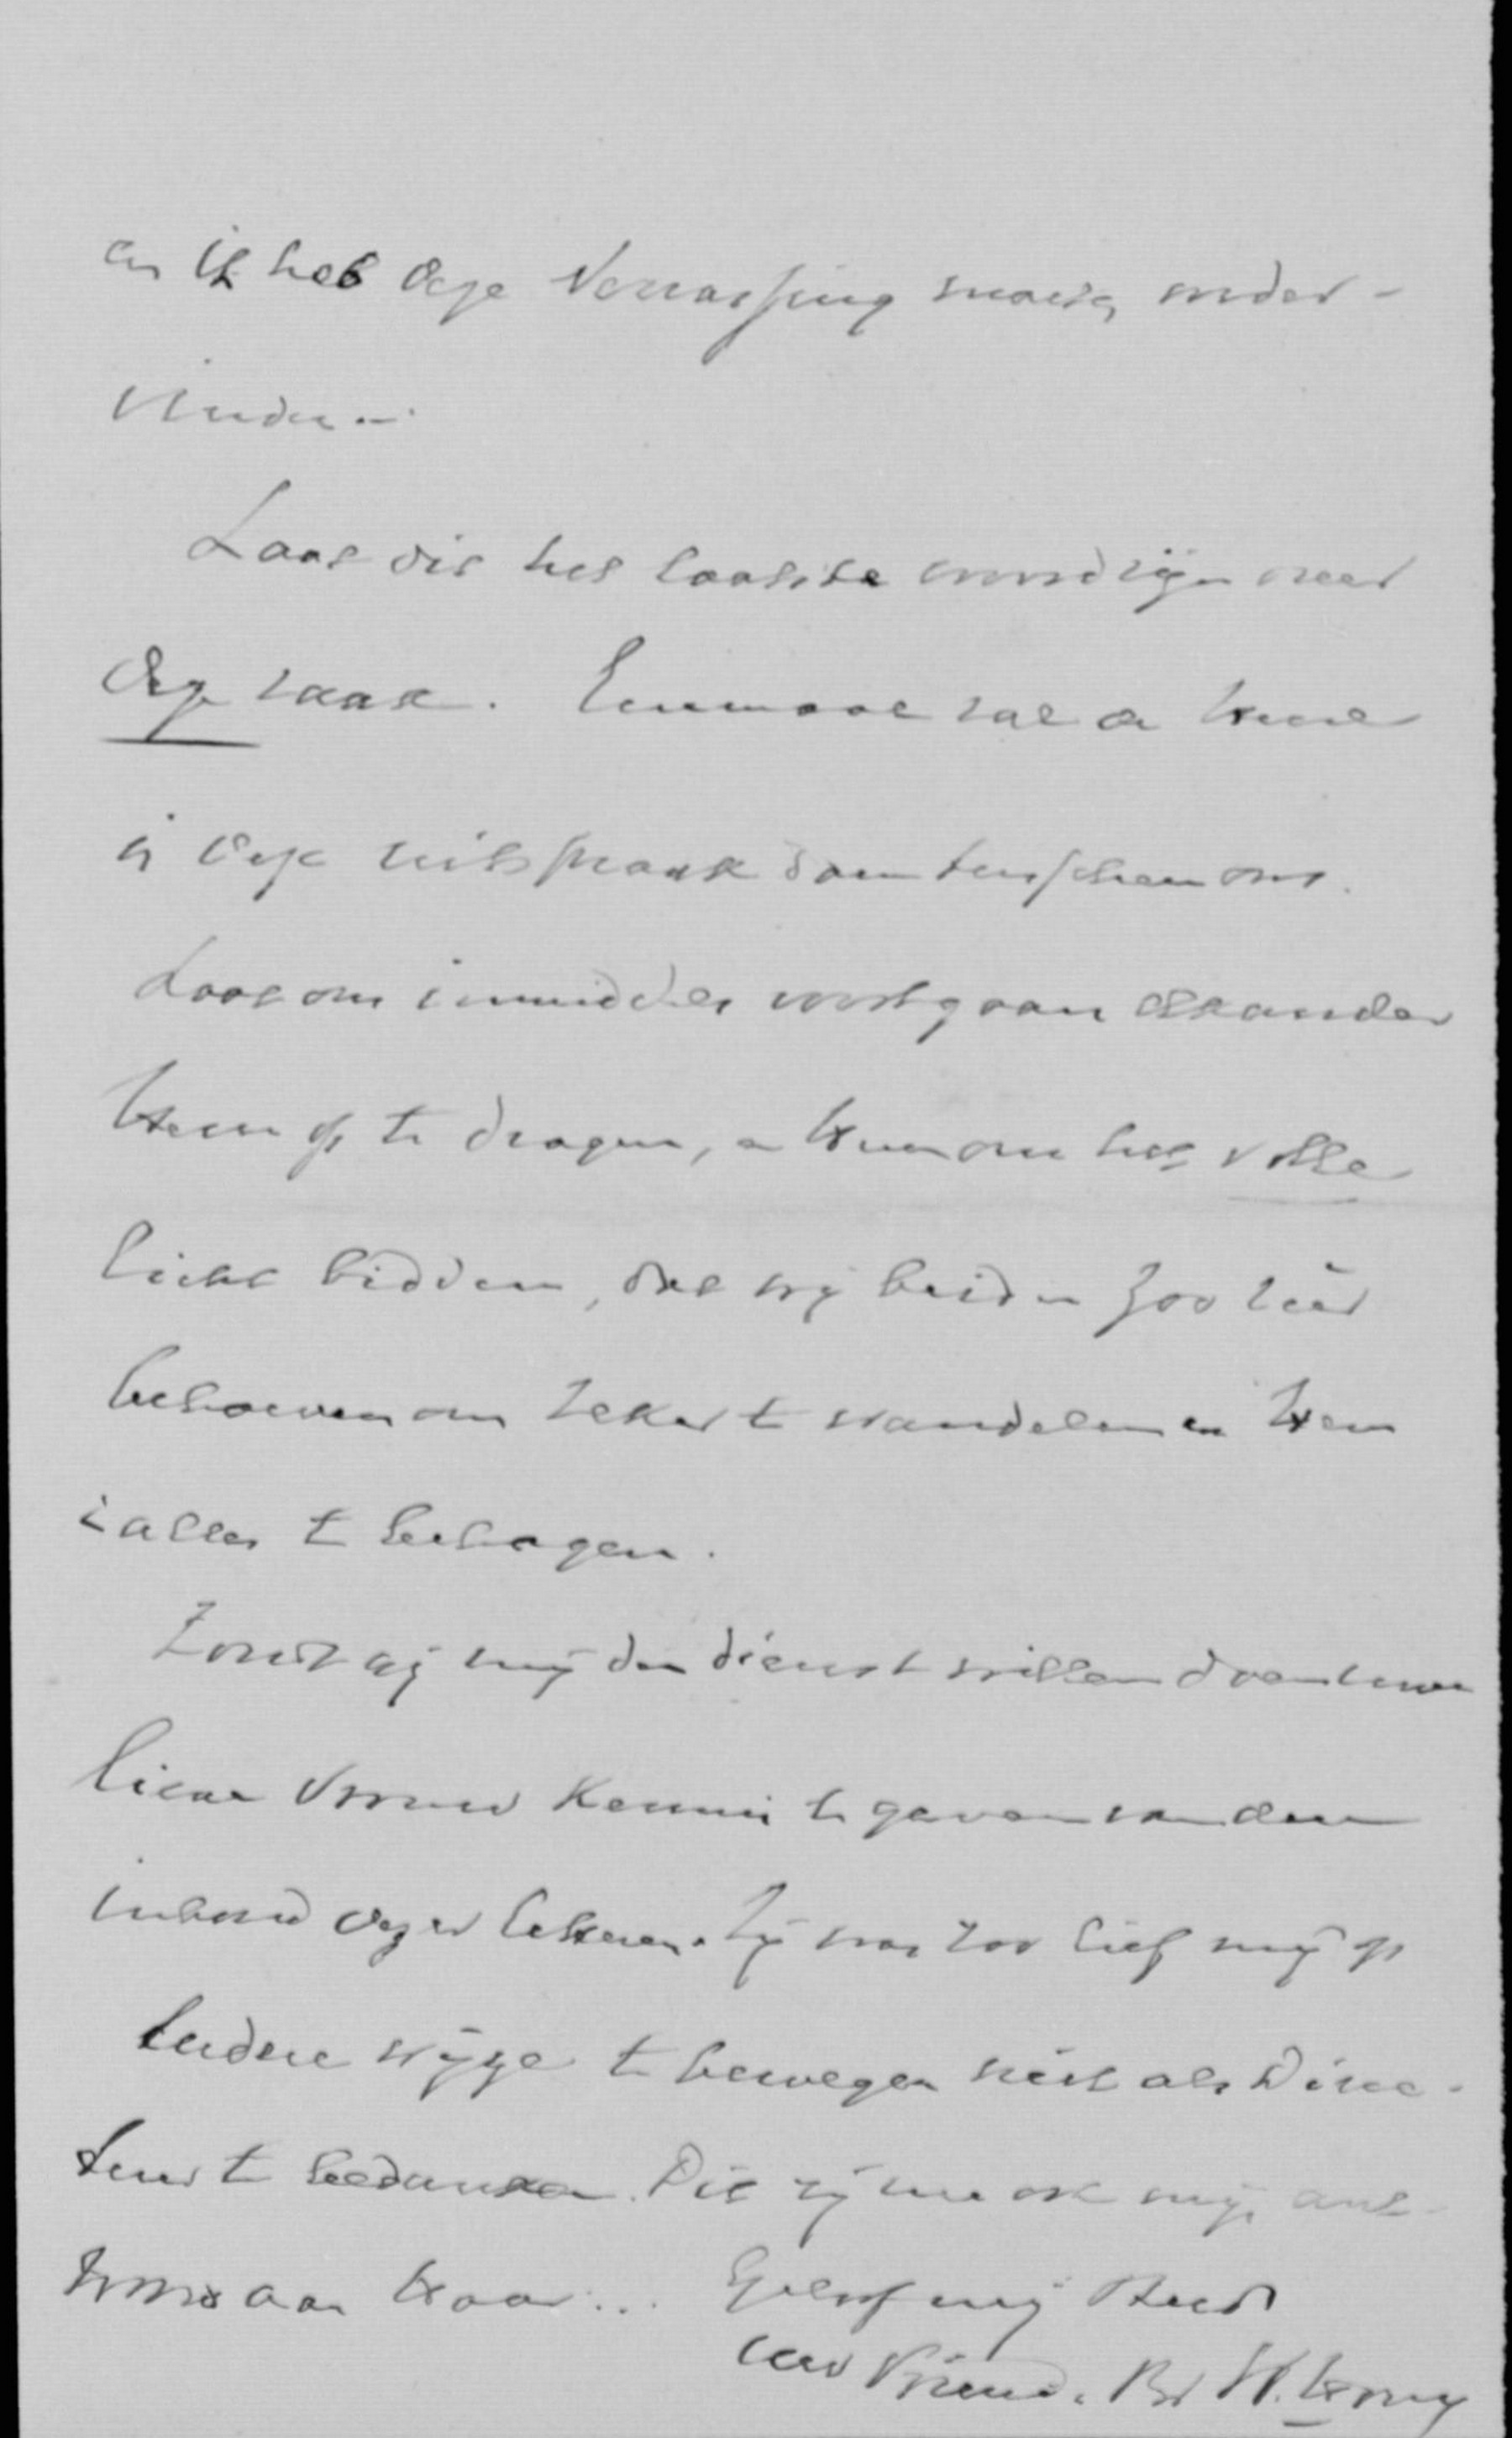 en ik heb deze verrassing onder-
vinden.
Laat dit het laatste woord zijn over
deze zaak. Eenmaal zal de Heer
uitspraak doen tusschen ons.
Laat ons inmiddels voortgaan elkander
Hem op te dragen, en Hem om het volle
licht bidden, dat wij beiden zoo zeer
behoeven om zeker te wandelen en Hem
in alles te behagen.
Zoudt gij mij den dienst willen doen uwe
lieve Vrouw kennis te geven van den
inhoud dezer letteren. Zij was zoo lief mij op
teedere wijze te bewegen niet als Direc-
teur te bedanken. Dit zij nu ook mijn ant-
woord aan Haar... Geloof mij steeds
uw Vriend. Br